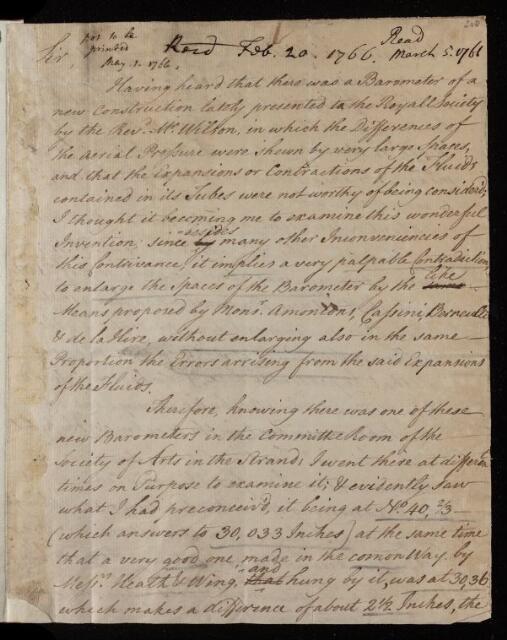 not to be
printed
May. 1. 1766.
Read Feb. 20. 1766.
Read
March 5. 1766
Sir,
Having heard that there was a Barometer of a
new Construction lately presented to the Royall Society
by the Revd. Mr. Wilson, in which the Differences of
the aerial Pressure were shewn by very large Spaces,
and that the Expansions or Contractions of the Fluids
contained in its Tubes were not worthy of being consider'd;
I thought it becoming me to examine this wonderful
Invention, since besides many other Inconveniencies of
this Contrivance, it implies a very palpable Contradiction,
to enlarge the Spaces of the Barometer by the like same
Means proposed by Monsr. Amontons, Cassini, Bernoulli
& de la Hire, without enlarging also in the same
Proportion the Errors arrising from the said Expansions
of the Fluids.
Therefore, knowing there was one of these
new Barometers in the Committe Room of the
Society of Arts in the Strand; I went there at different
times on Purpose to examine it; & evidently saw
what I had preconceiv'd, it being at No. 40, 2/3
(which answers to 30,033 Inches) at the same time
that a very good one, made in the comon Way, by
Messrs. Heath & Wing, that and hung by it, was at 30,36
which makes a difference of about 2½ Inches, the